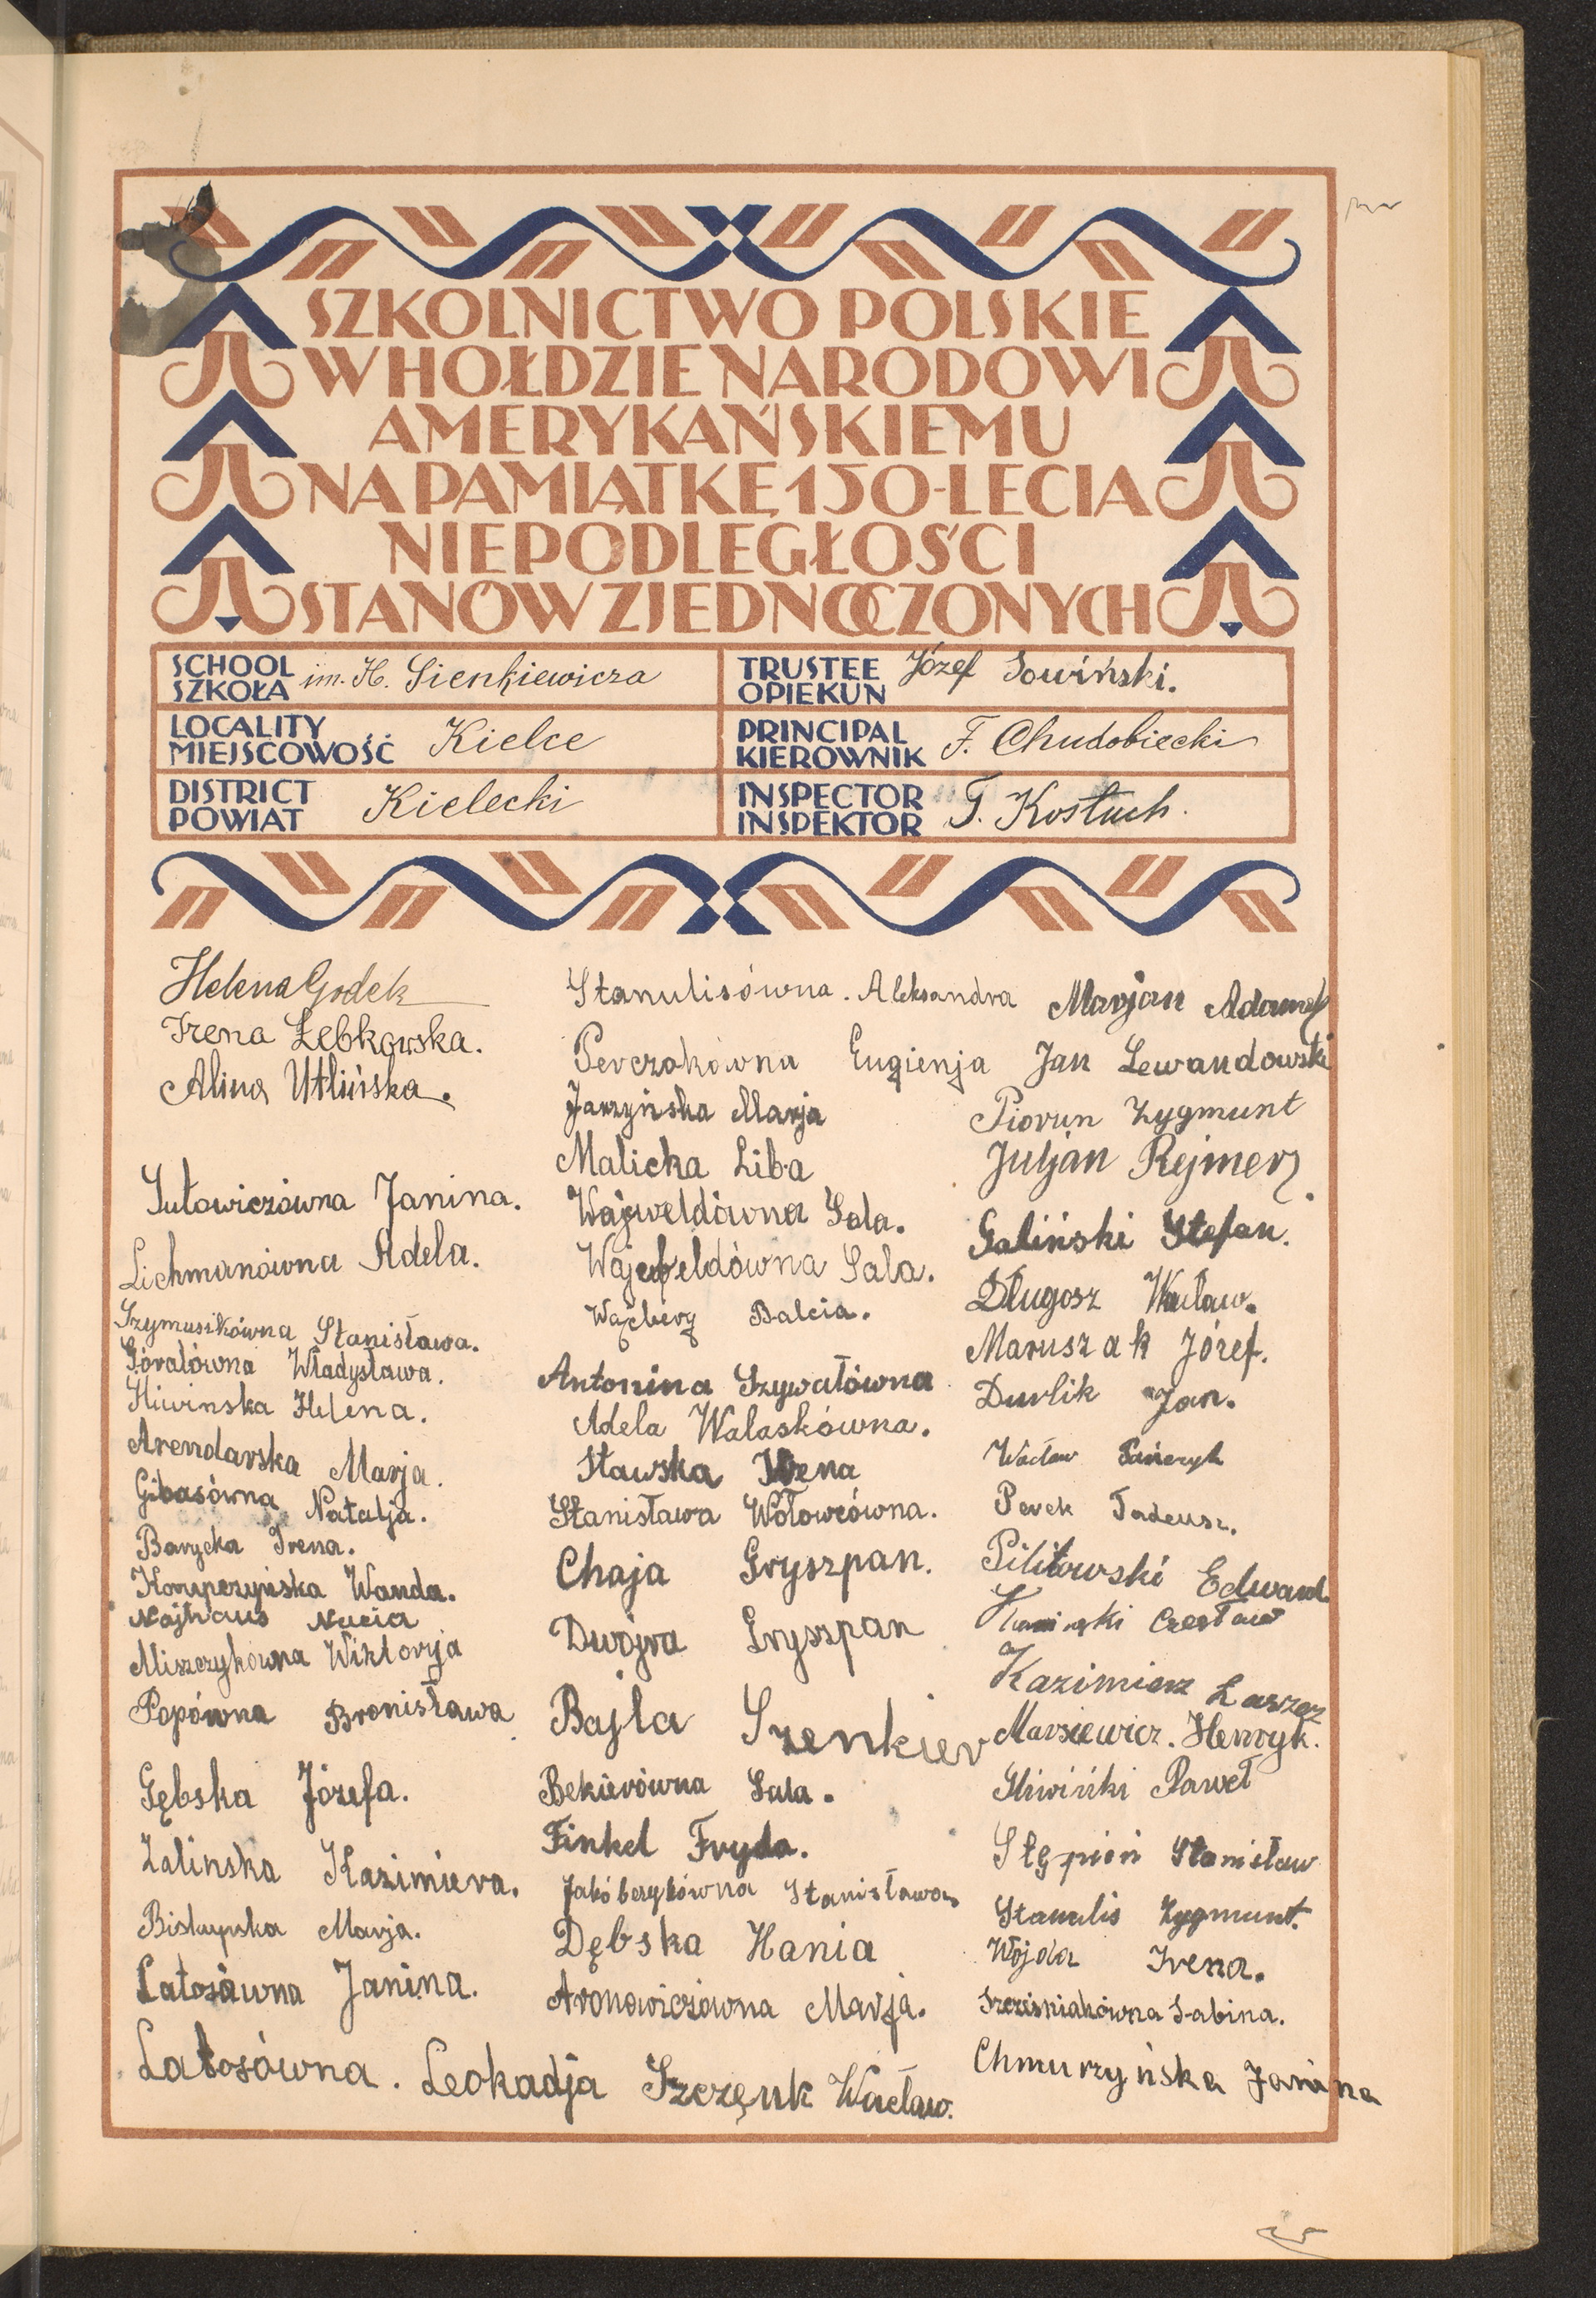 SZKOLNICTWO POLSKIE
W HOŁDZIE NARODOWI
AMERYKAŃSKIEMU
NA PAMIĄTKĘ 150-LECIA
NIEPODLEGŁOŚCI
STANÓW ZJEDNOCZONYCH
SCHOOL
SZKOŁA
im. H. Sienkiewicza
TRUSTEE
OPIEKUN
Józef Sowiński.
LOCALITY
MIEJSCOWOŚĆ
Kielce
PRINCIPAL
KIEROWNIK
F. Chudobiecki
DISTRICT
POWIAT
Kielecki
INSPECTOR
INSPEKTOR
T. Kostuch.
Helena Godek
Irena Łebkowska.
Alina Utlińska.
Sutowiczówna Janina.
Lichmanówna Adela.
Szymusikówna Stanisława.
Góralówna Władysława.
Śliwinska Helena.
Arendarska Marja.
Gibasówna Natalja.
Barycka Irena.
Wanda.
Najhaus Nacia
Miszczykówna Wiktorja
Popówna Bronisława
Gębska Józefa.
Zalinska Kazimiera.
Biskupska Marja.
Latosówna Janina.
Latosówna. Leokadja
Stanulisówna. Aleksandra
Perczakówna Eugienja
Jarzyńska Marja
Malicka Liba
Wajweldówna Sala.
Wajcfeldówna Sala.
Wajcberg Balcia.
Antonina Szywałówna
Adela Walaskówna.
Stawska Irena
Stanisława Wołowcówna.
Chaja Gryszpan.
Dwojra Gryszpan
Bajla Szenkier
Bekierówna Sala.
Finkel Fryda.
Jakóbczykówna Stanisława
Dębska Hania
Aronowiczówna Marja.
Szczęuk Wacław.
Marjan Adamek
Jan Lewandowski
Piorun Zygmunt
Juljan Rejmer
Galiński Stefan.
Długosz Wacław.
Maruszak Józef.
Durlik Jan.
Wacław Pańczyk
Perek Tadeusz.
Pilitowski Edward.
Kaminski Czesław
Kazimierz Laszez
Marsiewicz. Henryk.
Śliwiński Paweł
Stępień Stanisław
Stanulis Zygmunt.
Wojda Irena.
Szcześniakówna Sabina.
Chmurzyńska Janina